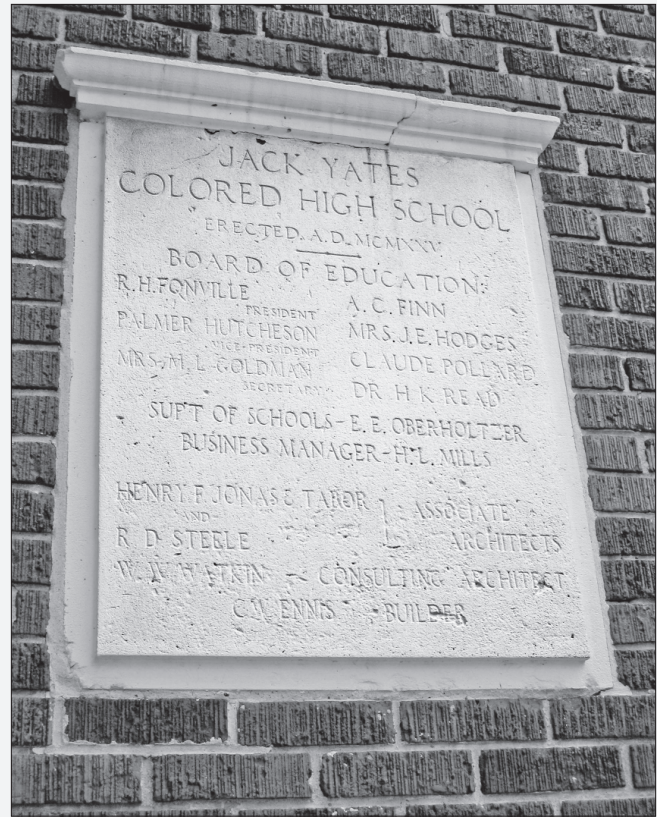 JACK YATES
COLORED HIGH SCHOOL
ERECTED. A.D. MCMXXV.
BOARD OF EDUCATION:
R.H. FONVILLE
PRESIDENT
PALMER HUTCHESON
VICE-PRESIDENT
MRS. M. L. GOLDMAN
SECRETARY
A. C. FINN
MRS. J. E. HODGES
CLAUDE POLLARD
DR. H. K. READ
SUP'T OF SCHOOLS - E. E. OBERHOLTZER
BUSINESS MANAGER - H. L. MILLS
HENRY F. JONAS & TABOR
AND
R. D. STEELE
ASSOCIATE
ARCHITECTS
W. W. WATKIN - CONSULTING ARCHITECT
C.W. ENNIS - BUILDER